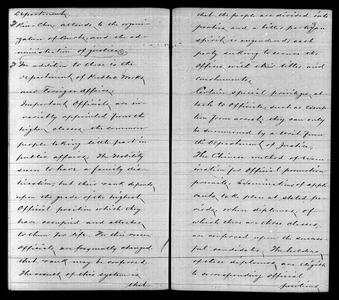 Departments,
attends to the organi-
zation of Courts, and the ad-
ministration of justice.
In addition to these is the
department of Public Works
and Foreign Office.
Important Officials are in-
variably appointed from the
higher classes, the common
people taking little part in
public affairs. The Nobility
seem to have a family dis-
tinction, but their rank depends
upon the grade of the highest
Official position which they
have occupied and attaches
to them for life. For this reason
officials are frequently changed
that rank may be conferred.
The result of this system is
that
that the people are divided into
parties and a bitter partizan
spirit is engendered, each
party seeking to secure the
offices with their titles and
emoluments.
Certain special privileges at-
tach to Officials, such as exemp-
tion from arrest, they can only
be summoned by a writ from
the department of Justice.
The Chinese method of exam-
ination for Official promotion
prevails. Examinations of appli-
cants, take place at stated pe-
riods, when diplomas, of
which there are three classes,
are conferred upon the success-
ful candidates. The holders
of these diplomas, are eligible
to corresponding official
positions